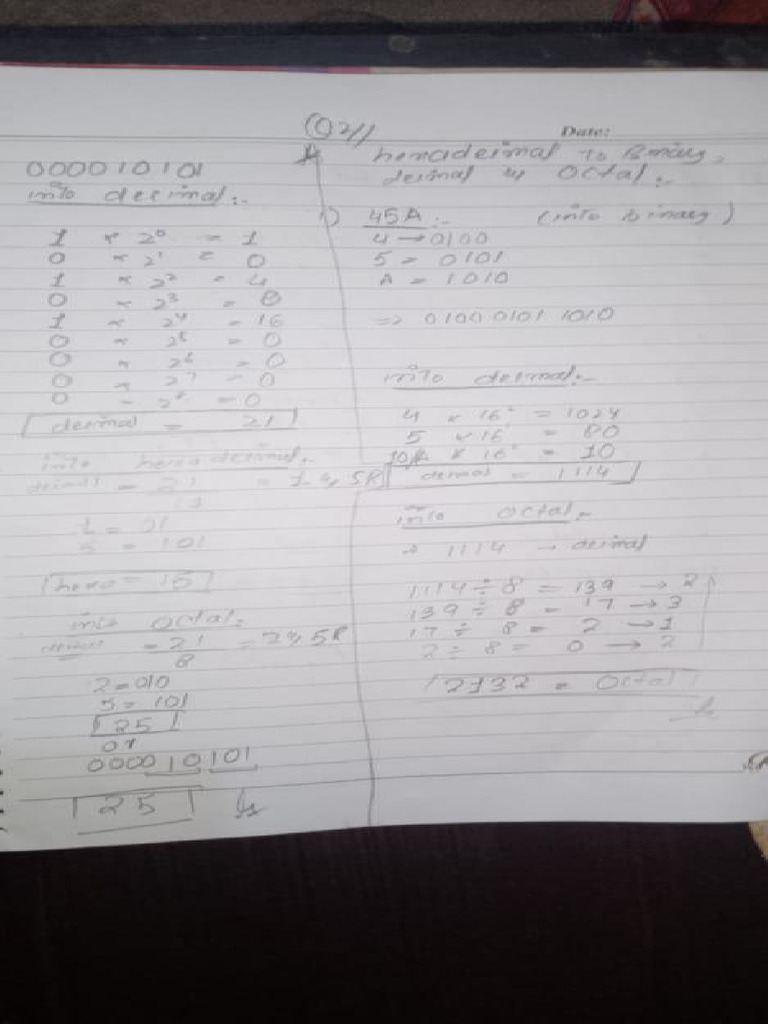 Q2//
Date:
000010101
into decimal:-
1 × 2⁰ = 1
0 × 2¹ = 0
1 × 2² = 4
0 × 2³ = 0
1 × 2⁴ = 16
0 × 2⁵ = 0
0 × 2⁶ = 0
0 × 2⁷ = 0
0 × 2⁸ = 0
decimal = 21
into hexadecimal:-
= 21 = 1 , 5R
5 = 101
hexa = 15
into Octal:-
= 21/8 = 2, 5R
2 = 010
5 = 101
25
or
000010101
25
hexadecimal To Binary,
decimal & Octal:-
1) 45A:- (into Binary)
4 → 0100
5 = 0101
A = 1010
=> 0100 0101 1010
into decimal:-
4 × 16² = 1024
5 × 16¹ = 80
10A × 16⁰ = 10
= 1114
into Octal:-
1114 → decimal
1114 ÷ 8 = 139 → 2
139 ÷ 8 = 17 → 3
17 ÷ 8 = 2 → 1
2 ÷ 8 = 0 → 2
2132 = Octal